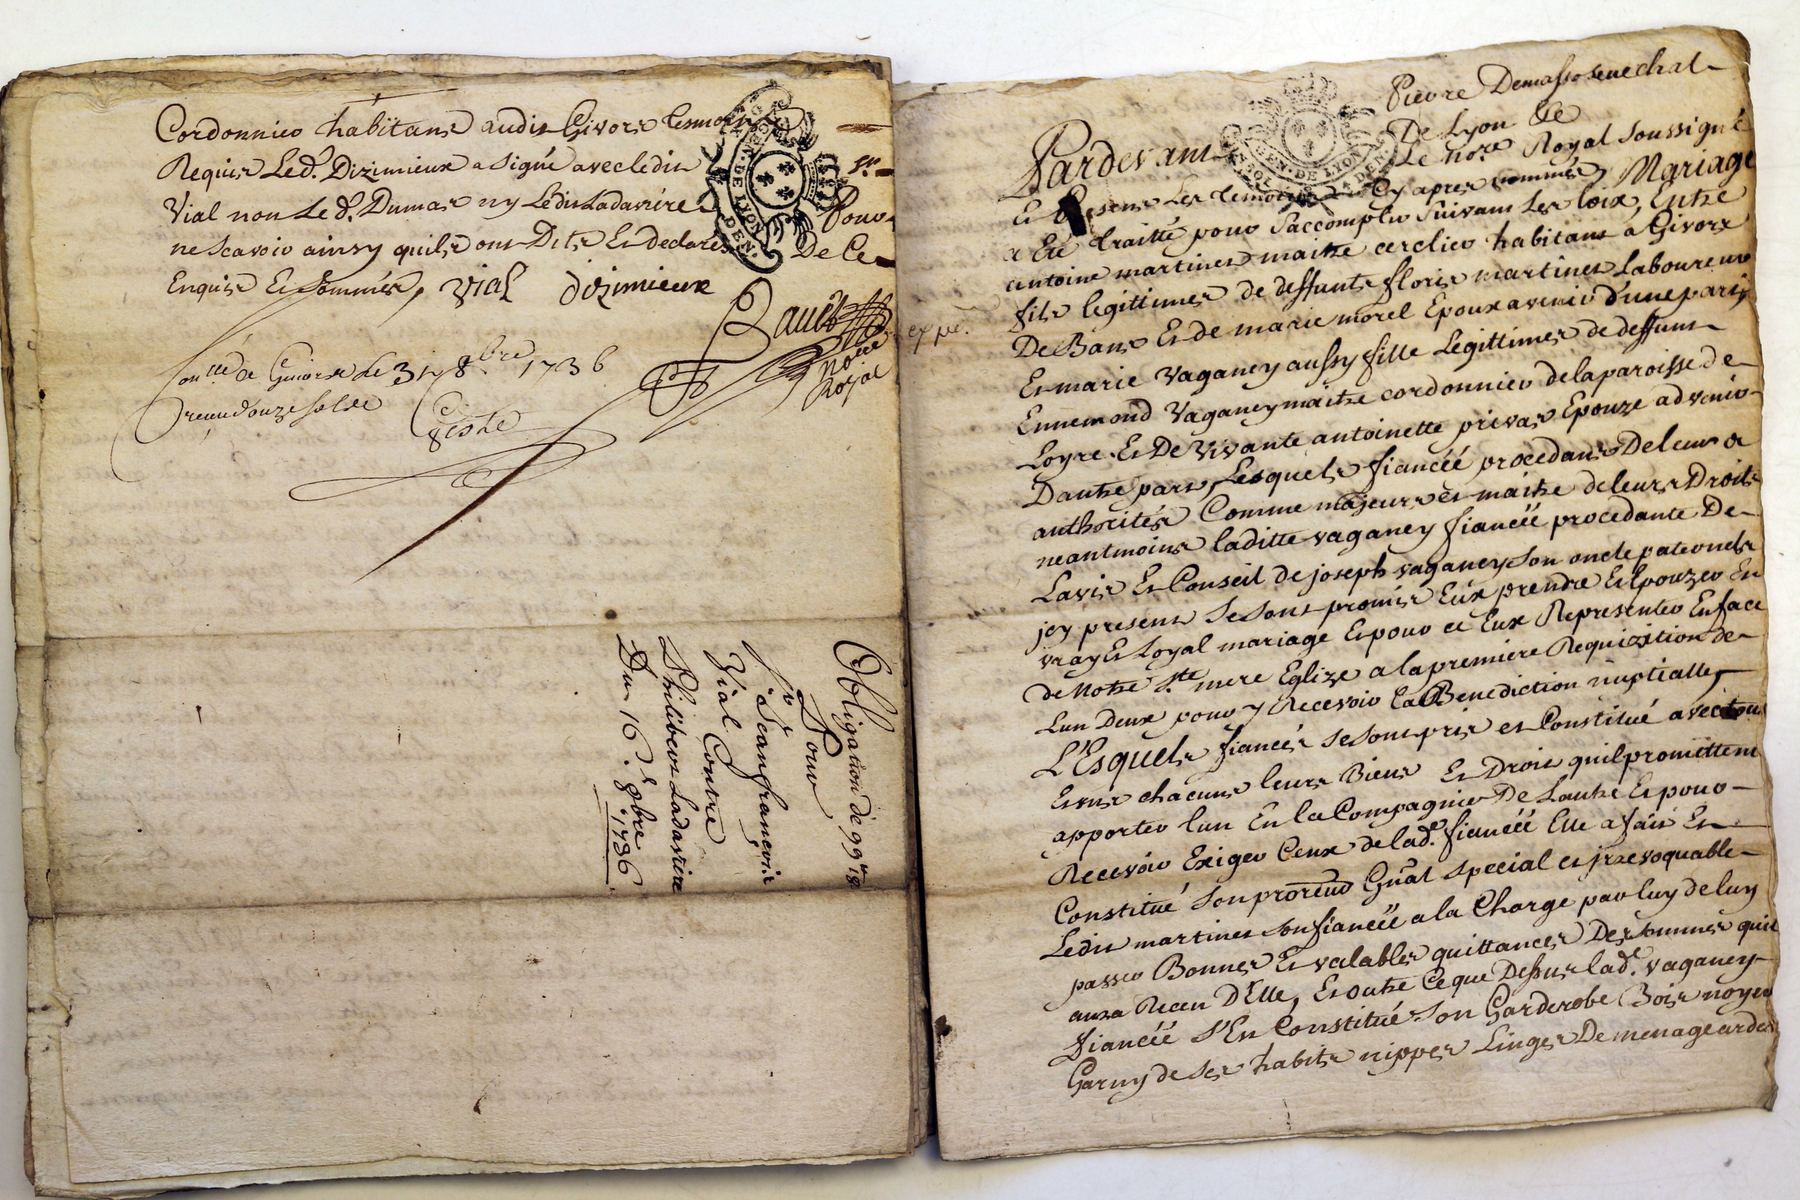 Cordonnier habitans audit Givors tesmoins
Requis Led. Dizimieux a signé avec ledit
Vial non Led. Dumas ny Ledit Ladavière
ne scavoir ainsy quils ont Dits Et declarés
Enquis Et sommés, vial dizimieux
Bauet
Nore
Royal
de Givors Le 31 8bre 1736
receu douze sols
Obligation de 99 18
Pour
Sr Jean françois
Vial Contre
Philibert Ladavière
Du 16e 8bre 1736
Pour
De Ce
GEN. DE LYON
Pierre Demasso senechal
De Lyon
Pardevant Le nore Royal soussigné
Et Presens Les temoins Cy apres nommés, Mariage
a Eté traitté pour saccomplir suivant Les loix, Entre
antoine martinet maitre cerclier habitant à Givors
fils legittimes de deffunts floris martinet Laboureur
De Bans Et de marie morel Epoux avenir d'une part
Et marie vaganey aussy fille Legittimes de deffunt
Ennemond vaganey maitre cordonnier de la paroisse de
Loyre Et De vivante antoinette privas Epouze advenir
Dautre part, Lesquels fiancéé procedans De leurs
authorités Comme majeurs et maitre de leurs Droits
neantmoins laditte vaganey fiancéé procedante De
Lavis Et Conseil de joseph vaganey son oncle paternels
jcy present se sont promis Eux prendre Et Epouzer En
vray Et Loyal mariage Et pour ce Eux Representer En face
de Notre Ste mere Eglize a la premiere Requizition de
Lun Deux pour y Recevoir La Benediction nuptialle,
L'Esquels fiancés se sont pris et Constitué avec tous
Et uns chacuns leurs Biens Et Droit quil promettent
apporter lun En la Compagnie De Lautre Et pour
Recevoir Exiger Ceux de lade. fiancéé Elle a fait Et
Constitué son procreur Gñal special et jrrevoquable
Ledit martinet son fiancéé a la Charge par luy de luy
passer Bonnes Et valables quittances Des sommes quil
aura Receu D'Elle, Et outre Ce que Dessus lade. vaganey
fiancéé S'En Constitué son Garderobe Bois noyer
Garny de ses habits nippes Linges De menage ardes